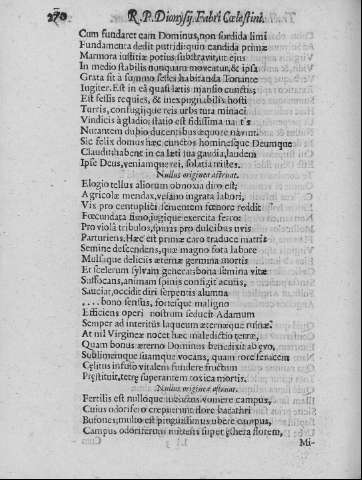 270 R. P. Dionysij Fabri Cœlestini.
Cum fundaret eam Dominus, non sordida limi
Fundamenta dedit putridique candida primæ
Marmora iustitiæ potius substravit, ut ejus
In medio stabilis nunquam moveatur, & ipsa
Grata sit à summo sedes habitanda Tonante
Iugiter. Est in ea quasi lætis mansio cunctis;
Est sessis requies, & inexpugnabilis hosti
Turris, confugijque reis urbs tuta minaci
Vindicis à gladio; statio est fidissima
Nutantem dubio ducentibus æquore navim.
Sic felix domus hæc cunctos hominesque Deumque
Claudit habens in ea læti sua gaudia, laudem
Ipse Deus, veniamque rei, solatia tristes.
Nullus originem astruat.
Elogio tellus aliorum obnoxia diro est;
Agricolæ mendax, vesano ingrata labori,
Vix pro centuplici sementem fœnore reddit
Fœcundata fimo, jugique exercita ferro:
Pro viola tribulos, spinis pro dulcibus uvis
Parturiens. Hæc est primæ caro traducemque matris
Semine descendens, quæ magno fota labore
Mulsisque delicijs æternæ germina mortis
Et scelerum sylvam generat bona semina vitæ
Suffocans, animam spinis confugit acutis,
Sauciat, occidit diri serpentis alumna
.... bono sensus, fortesque maligno
Efficiens operi nostrum seducit Adamum
Semper ad interitûs laqueum æternæque ruinæ.
At nil Virgineæ nocet hæc maledictio terræ,
Quam bonus æterno Dominus benedixit ab ævo,
Sublimemque suamque vocans, quam rore feracem
Cælitus infuso vitalem fundere fructum
Præstituit, tetræ superantem toxica mortis.
Nullus originem astruat.
Fertilis est nulloque subactus vomere campus,
Cuius odorifero crepuerunt flore barathri
Bufones; multo est pinguissimus ubere campus,
Campus odoriferum super æthera florem,
Mi-